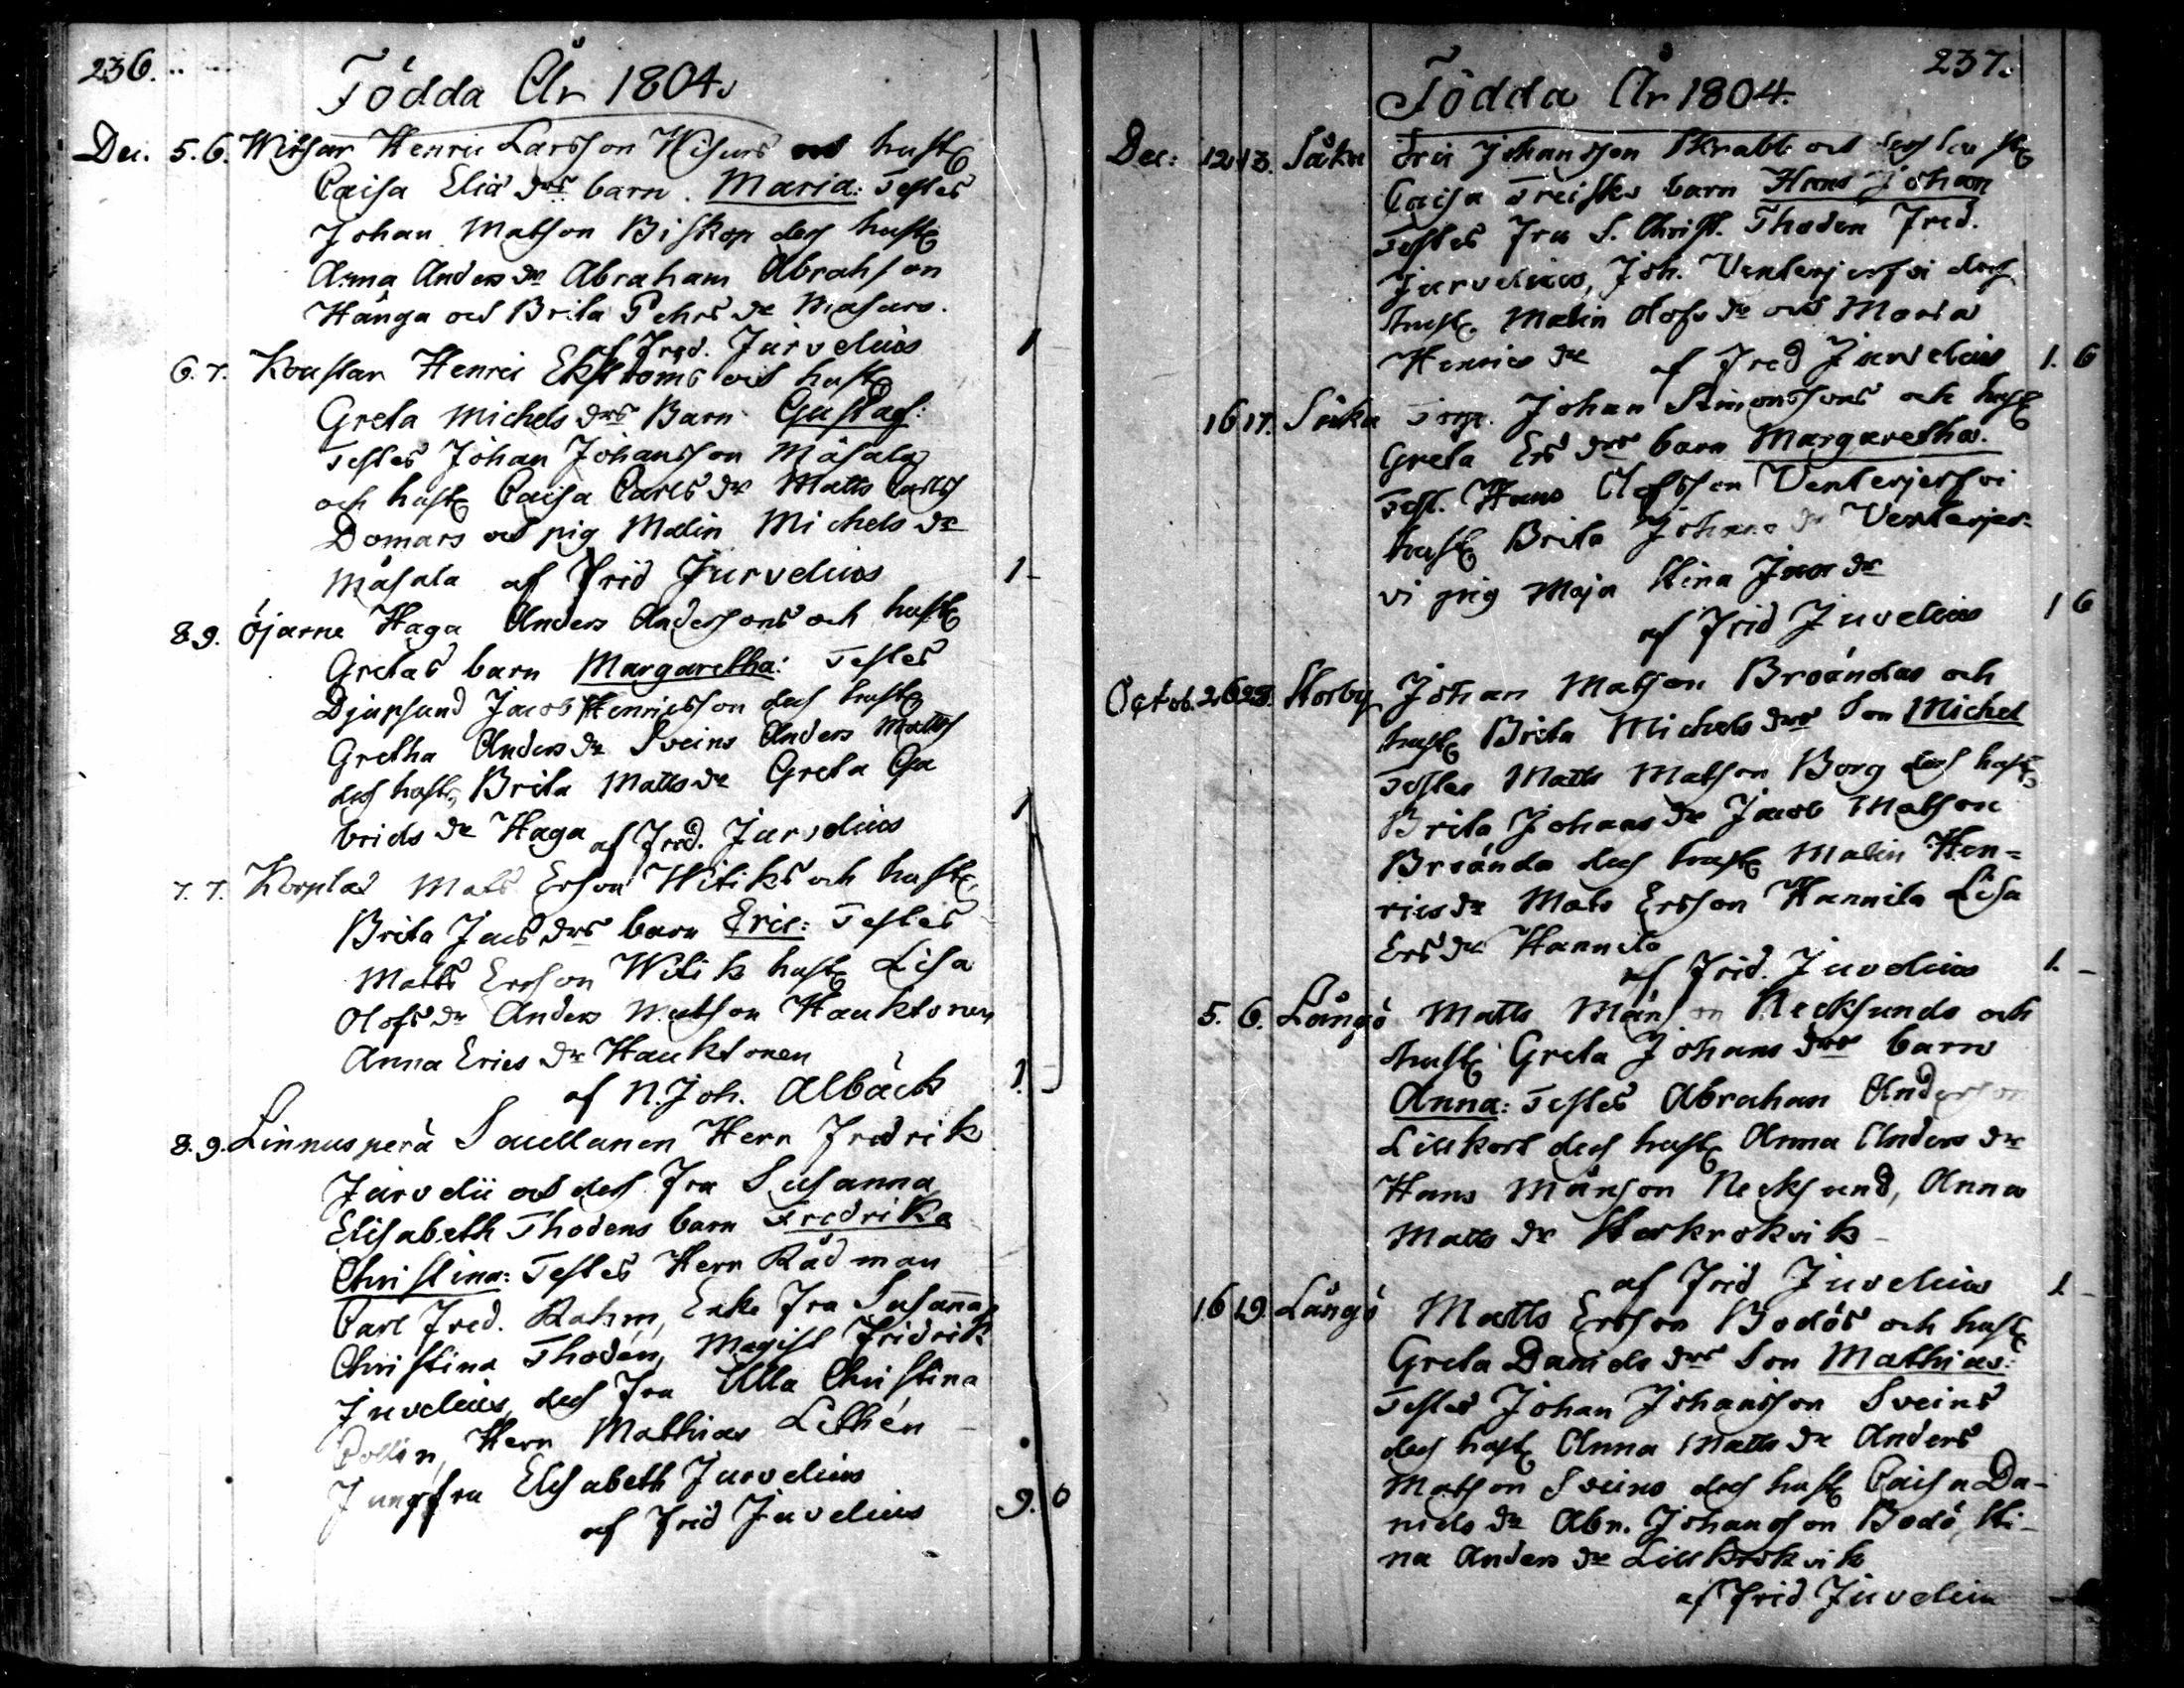 236.
Födda År 1804.
Dec. 5. 6. Wissar Henric Larsson Wisurs och hust
Caisa Elia drs barn. Maria: Testes
Johan Matson Biskop des hust
Anna Anders dr Abraham Abrahson
Hånga och Brita Pehrs dr Masars.
af Fred. Jurvelius 1
6. 7. Konstar Henric Ekströms och hust
Greta Michels drs Barn Gustaf:
Testes Johan Johansson Måsala
och hust Caisa Carls dr Matts Carlss
Domars och pig Malin Michels dr
Måsala af Frid Jurvelius 1 -
8. 9. Öjarne Haga Anders Andersons och hust
Gretas barn Margaretha: Testes
Djupsund Jacob Henricsson des hust
Gretha Anders dr Sveins Anders Matts
des hust, Brita Matts dr Greta Ga
brids dr Haga af Fred. Jurvelius 1
7. 7. Korplax Mats Erson Witiks och hust
Brita Jacs drs barn Eric: Testes
Matts Erson Witik hust Lisa
Olofs dr Anders Matson Hauktonen
Anna Erics dr Hauktonen
af N. Joh. Albäck 1. -
8. 9. Linnusperä Sauellanen Herr Fredrik
Jurvelii och des Fru Susanna
Elisabeth Thodens barn Fredrika
Christina: Testes Herr Rådman
Carl Fred. Rahm, Enke Fru Susanna
Christina Thodén, Magist Fridrik
Juvelius, des Fru Ulla Christina
Collin, Herr Mathias Lithén
Jungfru Elisabeth Jurvelius
af Frid Juvelius 9. 6
237.
Födda År 1804.
Dec: 12 13. Såka Eric Johansson Skrabb och
Caisa barn Hans Johan
Testes Fru S. Christ. Thoden Fred.
Jurvelius, Joh. Venterjerfvi des
hust. Malin Olofs dr och Maria
Henrics dr af Fred Jurvelius 1. 6
16 17. Såka Torp. Johan Simonssons och hust
Greta Ers drs barn Margaretha.
Test. Hans Olofsson Venterjerfvi
hust Brita Johans dr Venterjer-
vi pig Maja Stina Jacos dr
af Frid Juvelius 1 6
Octob. 26 28. Storby Johan Matson Broändas och
hust Brita Michels drs Son Michel
Testes Matts Matson Borg des hust
Brita Johans dr Jacob Matson
Broända des hust Malin Hen=
rics dr Mats Ersson Hannila Lisa
Ers dr Hannila
af Frid. Juvelius 1. -
5. 6. Långö Matts Månson Necksunds och
hust Greta Johans drs barn
Anna: Testes Abraham Anderson
Lillkors des hust Anna Anders dr
Hans Månson Necksund, Anna
Matts dr Storkrokvik -
af Frid Juvelius 1 -
16 19. Långö Matts Ersson Bodös och hust
Greta Daniels drs Son Mathias:
Testes Johan Johansson Sveins
des hust Anna Matts dr Anders
Matson Sveins des hust Caisa Da-
niels dr Abr. Johansson Bodö, Sti-
na Anders dr Lillkrokvik
af Frid Juvelius